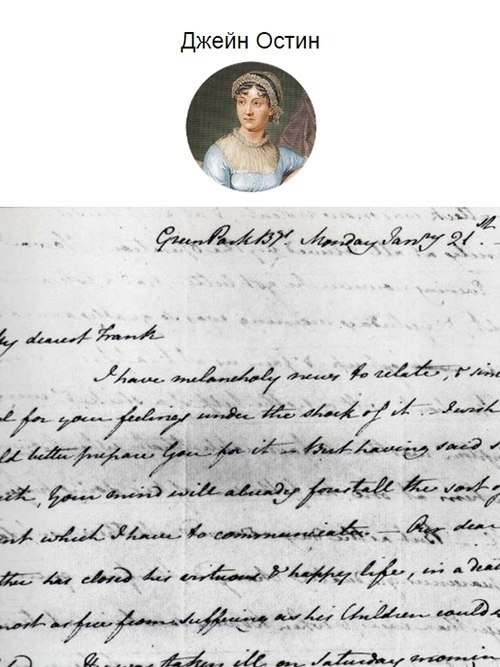 Джейн Остин
Green Park Bgs. Monday Jany 21st.
My dearest Frank
I have melancholy news to relate, & sin
el for your feelings under the shock of it. – I wish
ld better prepare You for it. – But having said s
uch, Your mind will already forestall the sort of
nt which I have to communicate. – Our dear
ther has closed his virtuous & happy life, in a deat
most as free from suffering as his Children could
d. He was taken ill on Saturday mornin